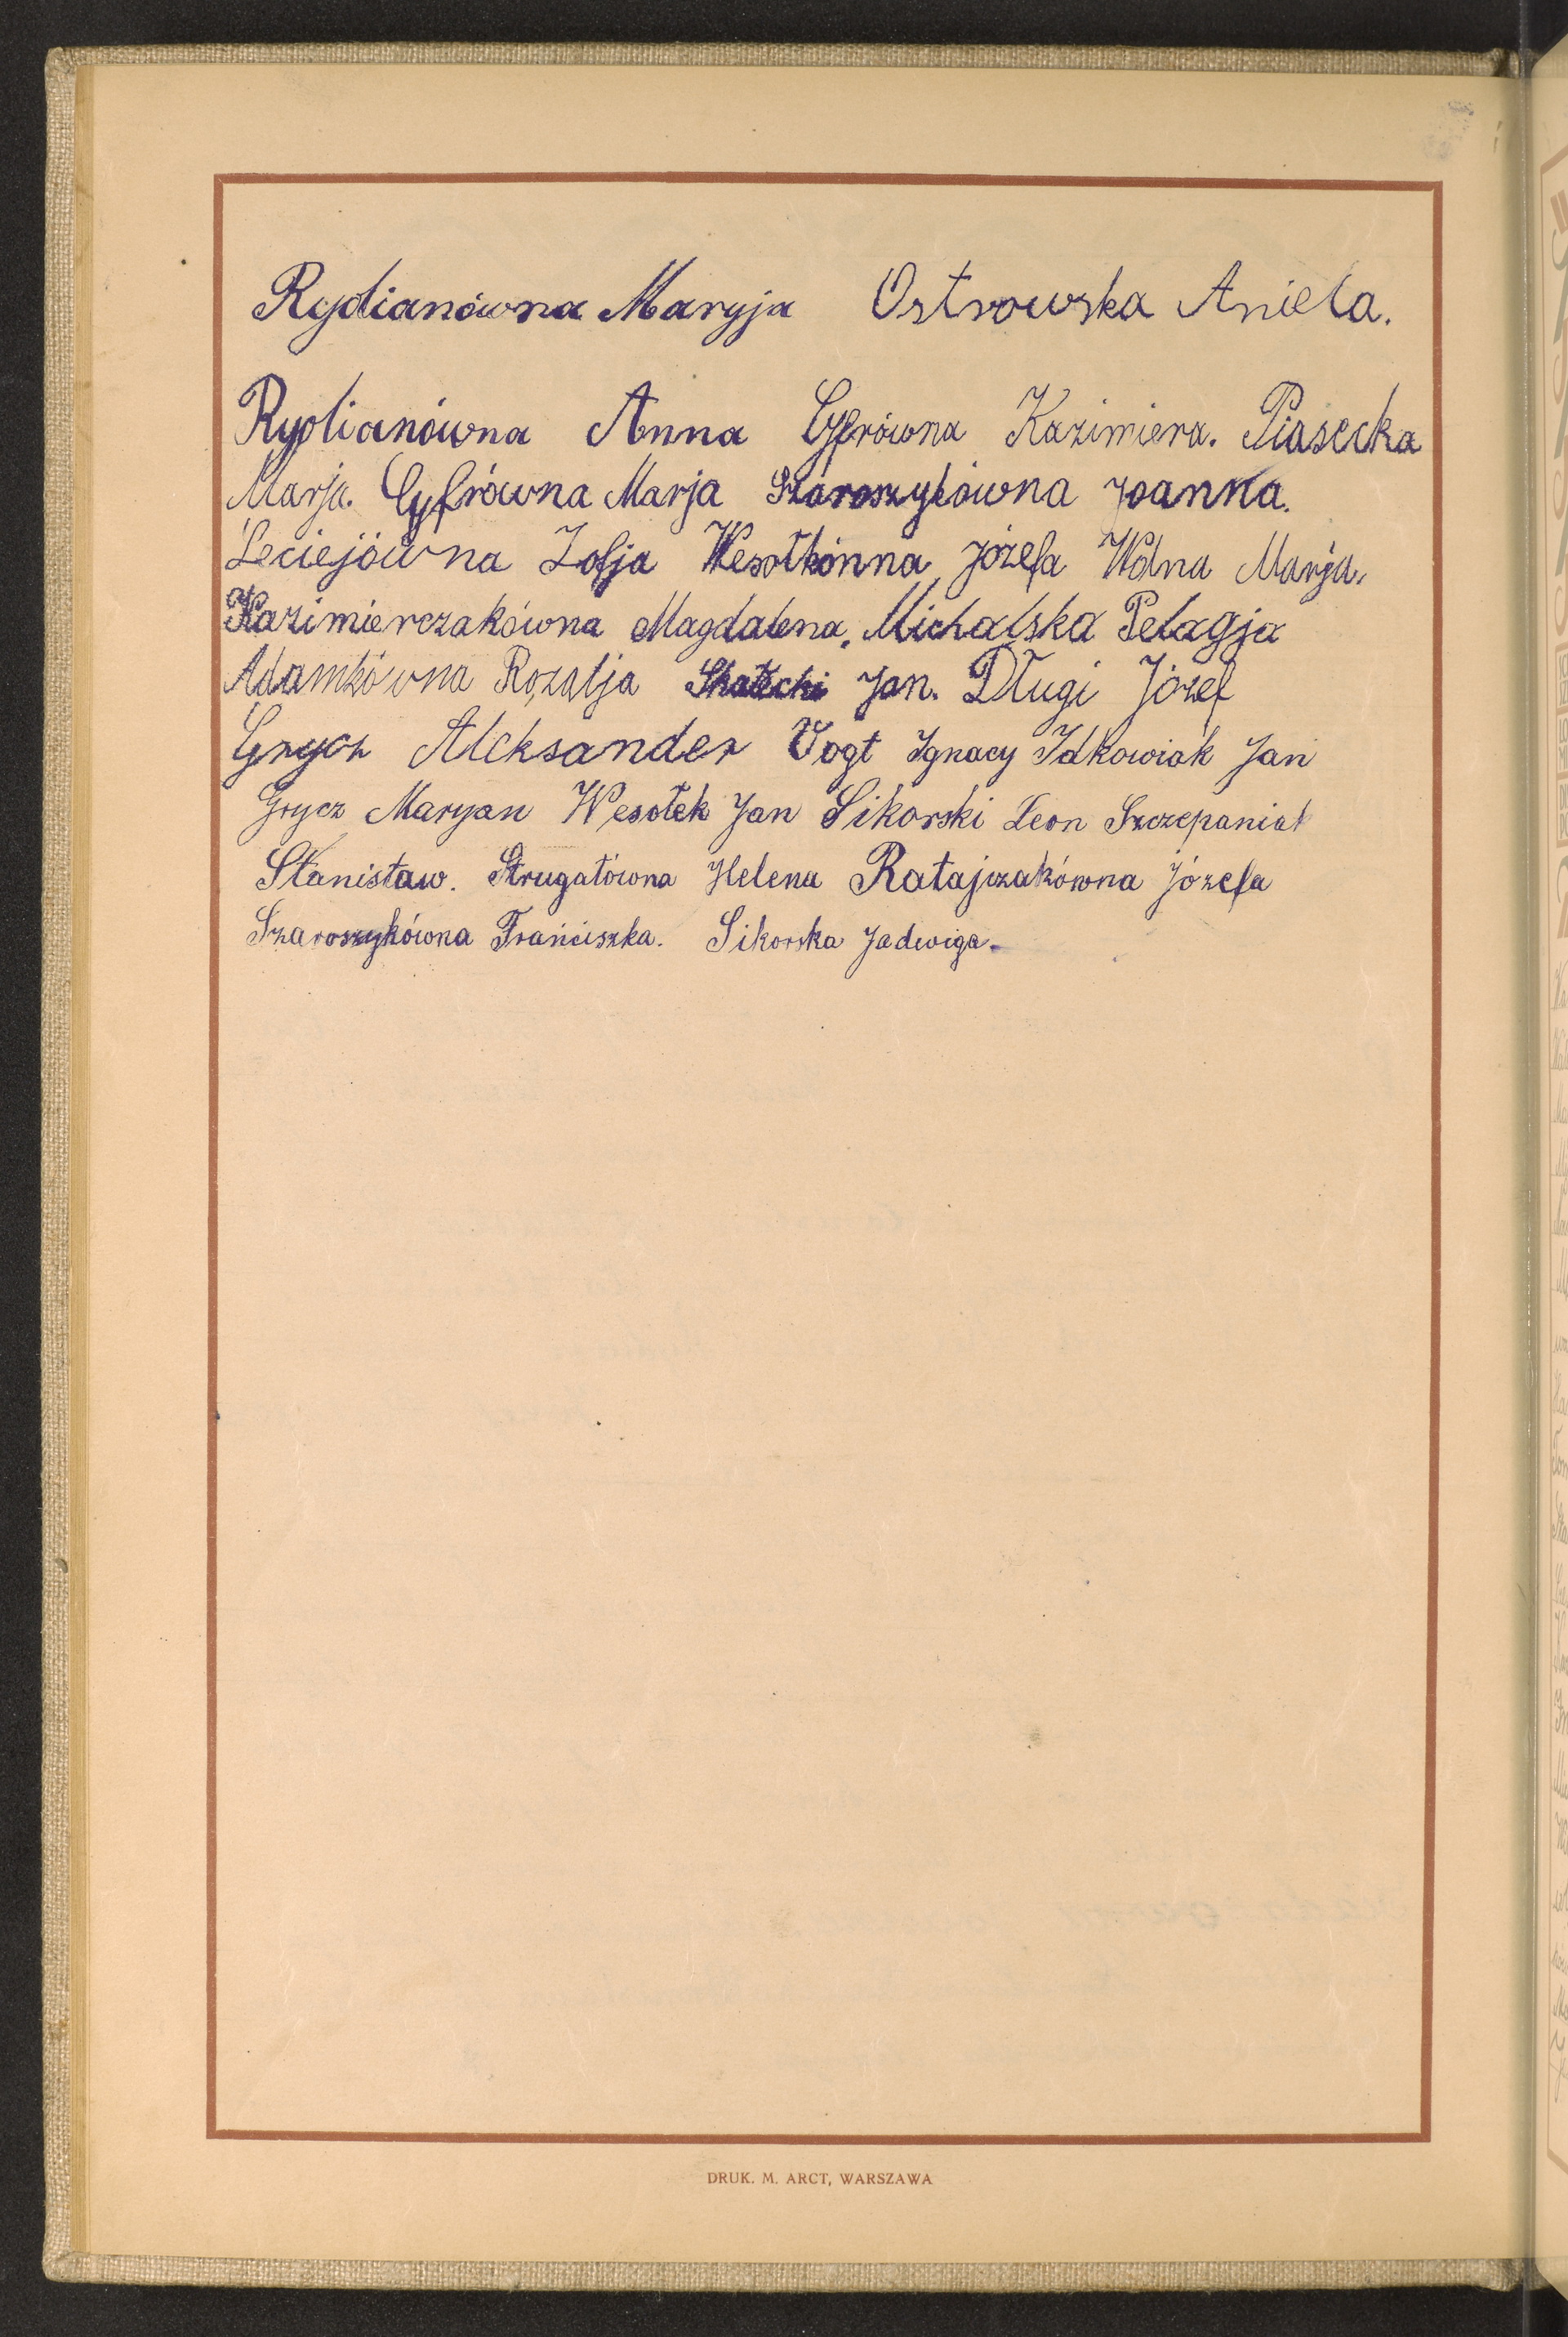 Rydianówna Maryja Ostrowska Aniela.
Rydianówna Anna Cyfrówna Kazimiera. Piasecka
Marja. Cyfrówna Marja Szaroszykówna Joanna.
Leciejówna Zofja Wesołkónna Józefa Wolna Marja.
Kazimierczakówna Magdalena. Michalska Pelagja
Adamkówna Rozalja Skałecki Jan. Długi Józef
Grycz Aleksander Vogt Ignacy Idkowiak Jan
Grycz Maryan Wesołek Jan Sikorski Leon Szczepaniak
Stanisław. Strugałówna Helena Ratajczakówna Józefa
Szaroszykówna Franciszka. Sikorska Jadwiga.
DRUK. M. ARCT, WARSZAWA